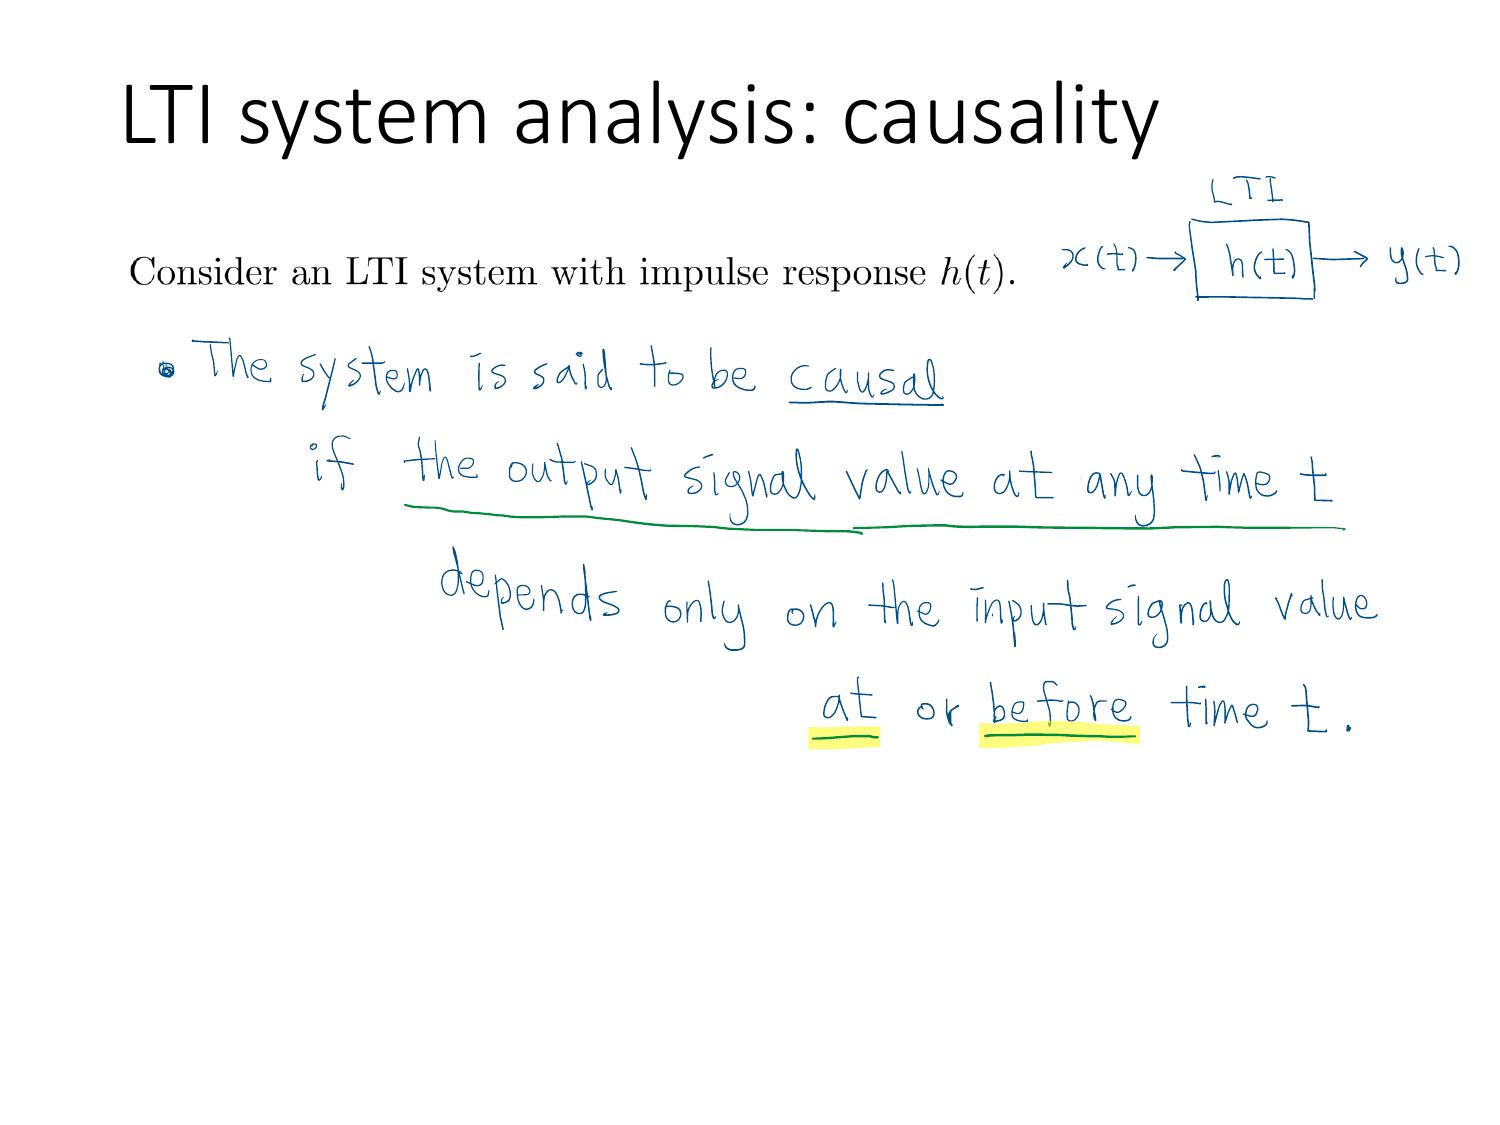 LTI system analysis: causality
LTI
Consider an LTI system with impulse response h(t).
x(t) → h(t) → y(t)
• The system is said to be causal
if the output signal value at any time t
depends only on the input signal value
at or before time t.